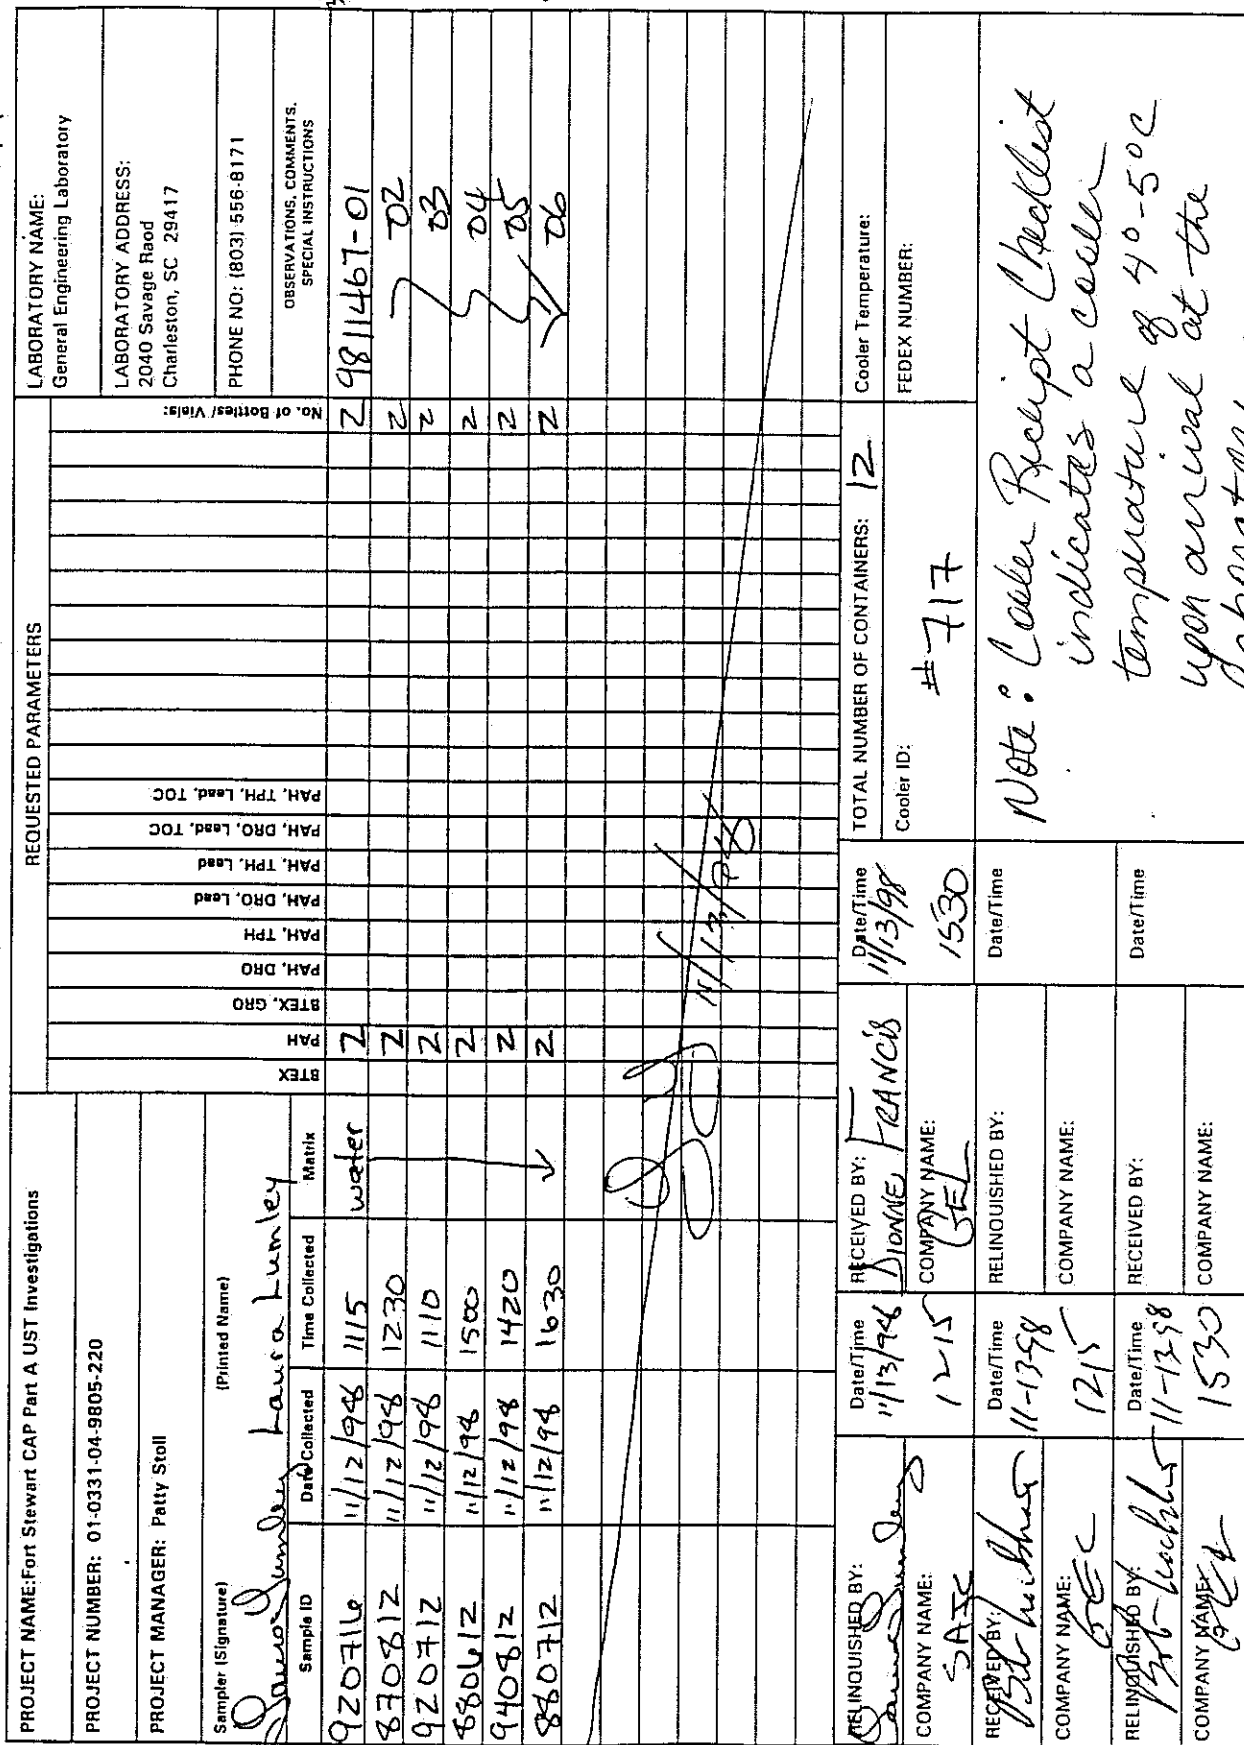 PROJECT NAME:Fort Stewart CAP Part A UST Investigations
PROJECT NUMBER: 01-0331-04-9805-220
PROJECT MANAGER: Patty Stoll
Sampler (Signature) (Printed Name)
Laura Lumley Laura Lumley
REQUESTED PARAMETERS
LABORATORY NAME:
General Engineering Laboratory
LABORATORY ADDRESS:
2040 Savage Raod
Charleston, SC 29417
PHONE NO: (803) 556-8171
Sample ID Date Collected Time Collected Matrix
BTEX
PAH
BTEX, GRO
PAH, DRO
PAH, TPH
PAH, DRO, Lead
PAH, TPH, Lead
PAH, DRO, Lead, TOC
PAH, TPH, Lead, TOC
No. of Bottles/ Vials:
OBSERVATIONS, COMMENTS,
SPECIAL INSTRUCTIONS
920716 11/12/98 1115 water 2 2 9811467-01
870812 11/12/98 1230 2 2 02
920712 11/12/98 1110 2 2 03
880612 11/12/98 1500 2 2 04
940812 11/12/98 1420 2 2 05
880712 11/12/98 1630 2 2 06
11/13/98
RELINQUISHED BY:
Laura Lumley
Date/Time
11/13/98
COMPANY NAME:
SAIC
1215
RECEIVED BY:
Dionne Francis
Date/Time
11/13/98
COMPANY NAME:
GEL
1530
TOTAL NUMBER OF CONTAINERS: 12
Cooler Temperature:
Cooler ID:
#717
FEDEX NUMBER:
RECEIVED BY:
Date/Time
11-13-98
COMPANY NAME:
1215
RELINQUISHED BY:
Date/Time
COMPANY NAME:
RELINQUISHED BY:
Date/Time
11-13-98
COMPANY NAME:
1530
RECEIVED BY:
Date/Time
COMPANY NAME:
Note: Cooler Receipt Checklist
indicates a cooler
temperature of 4°-5°C
upon arrival at the